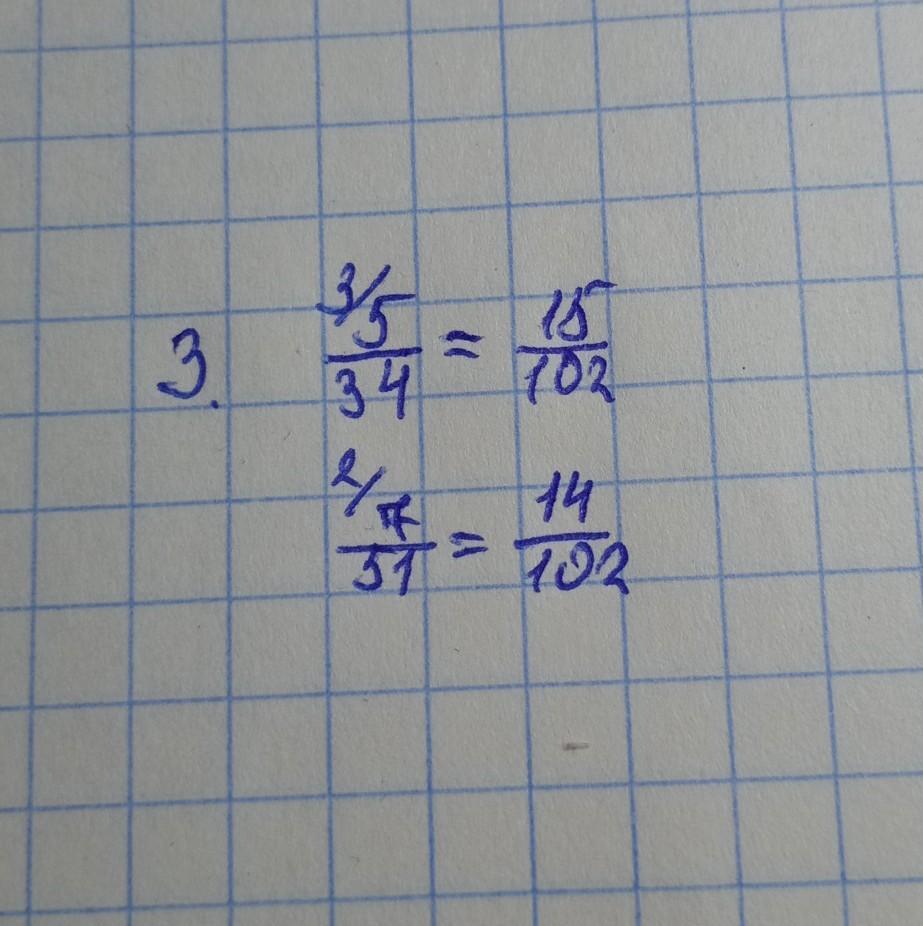 3. 3/5/34 = 15/102
2/7/51 = 14/102